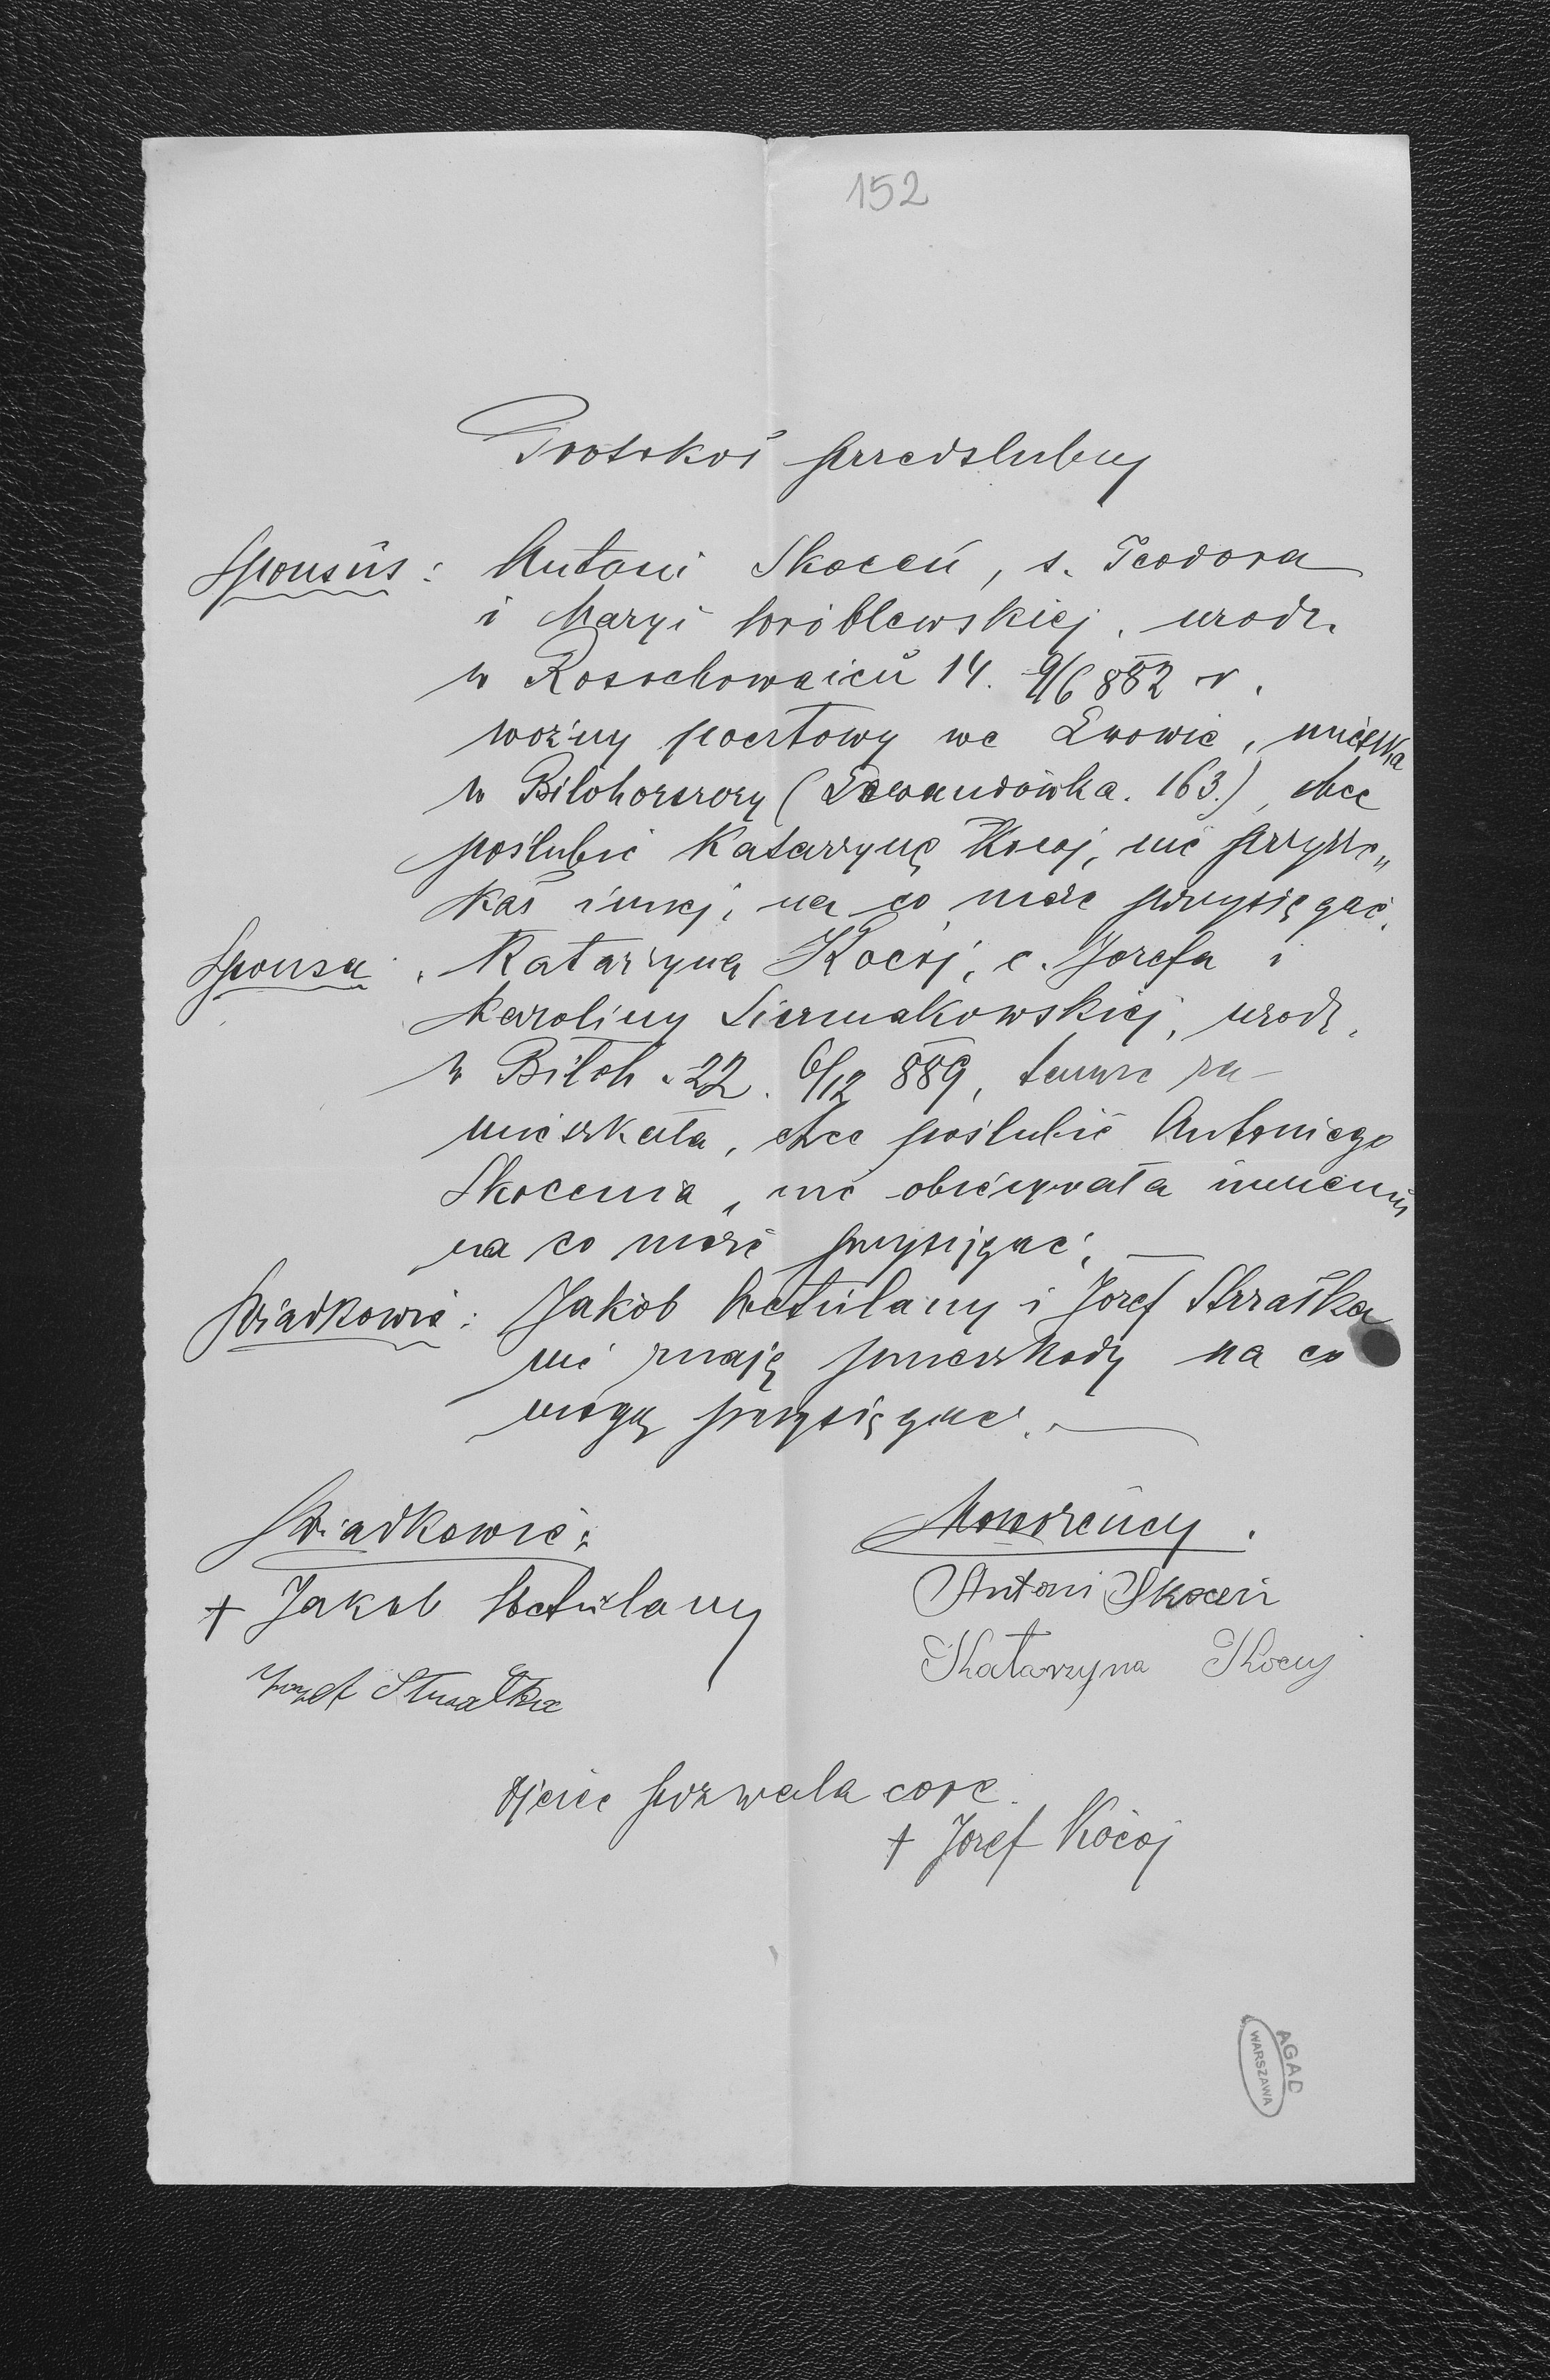 152
Protokół przedslubny
Sponsus : Antoni Skoceń, s. Teodora
i Maryi Wróblewskiej, urodz.
w Rosochowaicu 14. 9/6 882 r.
woźny pocztowy we Lwowie, mieszka
w Biłohorszczy (Lewandówka. 163.), chce
poślubić Katarzynę Kocój, nie przyrze„
kał innej, na co może przysięgać.
Sponsa : Katarzyna Kocój, c. Józefa i
Karoliny Siermakowskiej, urodz.
w Biłoh. 22. 6/12 889, tamże za-
mieszkała, chce poślubić Antoniego
Skocenia, nie obiecywała innemu
na co może przysięgać. —
Świadkowie : Jakób Wetulany i Józef Strzałka
nie znają przeszkody na co
mogą przysięgać. —
Świadkowie :
Moworzeńcy.
+ Jakób Wetulany
Antoni Skoceń
Józef Strzałka
Katarzyna Kocuj
Ojciec pozwala córce.
+ Józef Kócój
AGAD
WARSZAWA